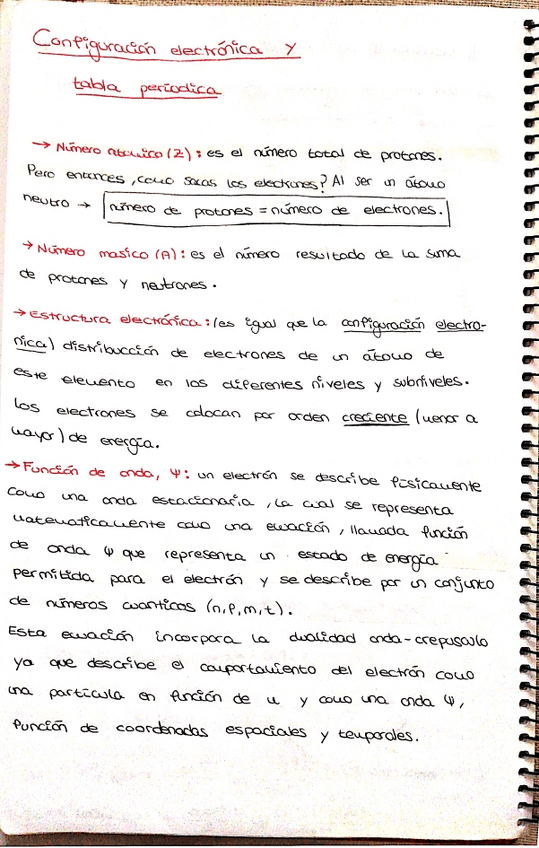 Configuración electrónica y
tabla periodica
→ Número atomico (Z) : es el número total de protones.
Pero entonces, como sacas los electrones? Al ser un átomo
neutro → número de protones = número de electrones.
→ Número masico (A) : es el número resultado de la suma
de protones y neutrones.
→ Estructura electrónica : (es igual que la configuración electro-
nica) distribucción de electrones de un átomo de
este elemento en los diferentes niveles y subniveles.
Los electrones se colocan por orden creciente (menor a
mayor) de energía.
→ Función de onda, Ψ : un electrón se describe físicamente
como una onda estacionaria, la cual se representa
matematicamente como una ecuación, llamada función
de onda Ψ que representa un estado de energía
permitida para el electrón y se describe por un conjunto
de números cuanticos (n, l, m, t).
Esta ecuación incorpora la dualidad onda-crepusculo
ya que describe el comportamiento del electrón como
una partícula en función de u y como una onda Ψ,
función de coordenadas espaciales y temporales.